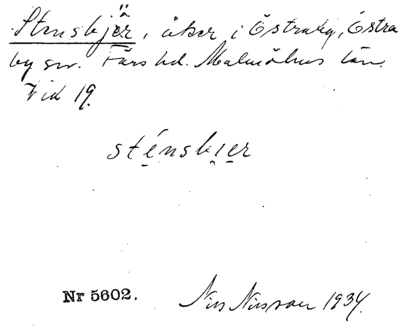 Stensbjär, åker i Östraby, Östra
by sn. Färs hd. Malmöhus län.
Vid 19.
sténsbi̯er
Nr 5602.
Nils Nilsson 1934.